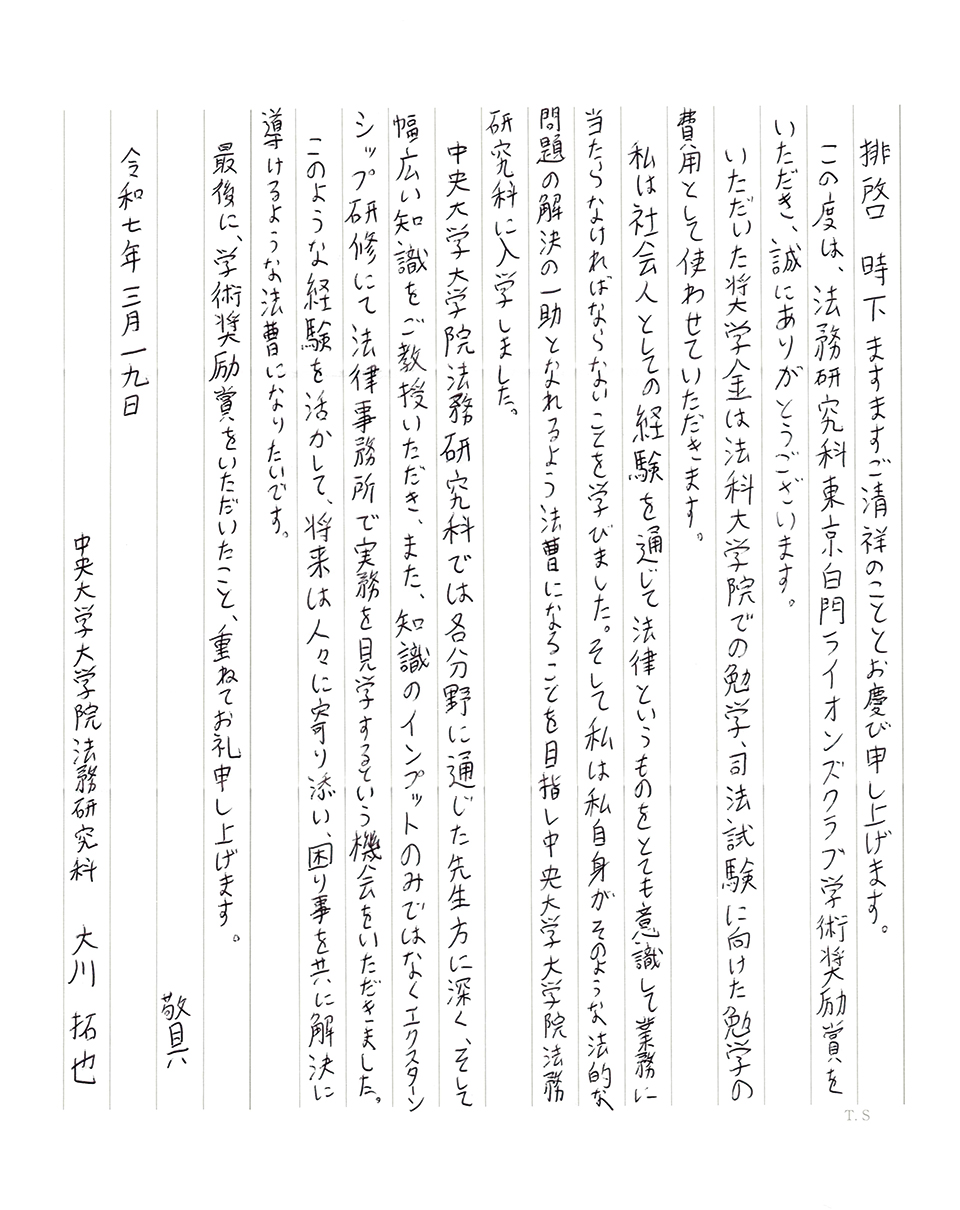 排啓　時下ますますご清祥のこととお慶び申し上げます。
この度は、法務研究科東京白門ライオンズクラブ学術奨励賞を
いただき、誠にありがとうございます。
いただいた奨学金は法科大学院での勉学、司法試験に向けた勉学の
費用として使わせていただきます。
私は社会人としての経験を通じて法律というものをとても意識して業務に
当たらなければならないことを学びました。そして私は私自身がそのような法的な
問題の解決の一助となれるよう法曹になることを目指し中央大学大学院法務
研究科に入学しました。
中央大学大学院法務研究科では各分野に通じた先生方に深く、そして
幅広い知識をご教授いただき、また、知識のインプットのみではなくエクスターン
シップ研修にて法律事務所で実務を見学するという機会をいただきました。
このような経験を活かして、将来は人々に寄り添い、困り事を共に解決に
導けるような法曹になりたいです。
最後に、学術奨励賞をいただいたこと、重ねてお礼申し上げます。
敬具
令和七年三月一九日
中央大学大学院法務研究科　大川　拓也
T. S